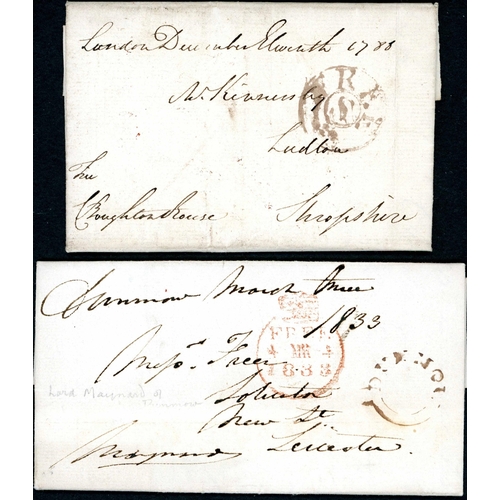 London December Eleventh 1788
Mr. Kinnersley
Ludlow
Free
C Boughton Rouse
Shropshire
Dunmow March three
1833
FREE
4 MR 4
1833
Messrs. Freer
Solicitor
New St.
Leicester
Maynard
Lord Maynard of
Dunmow
DUNMOW